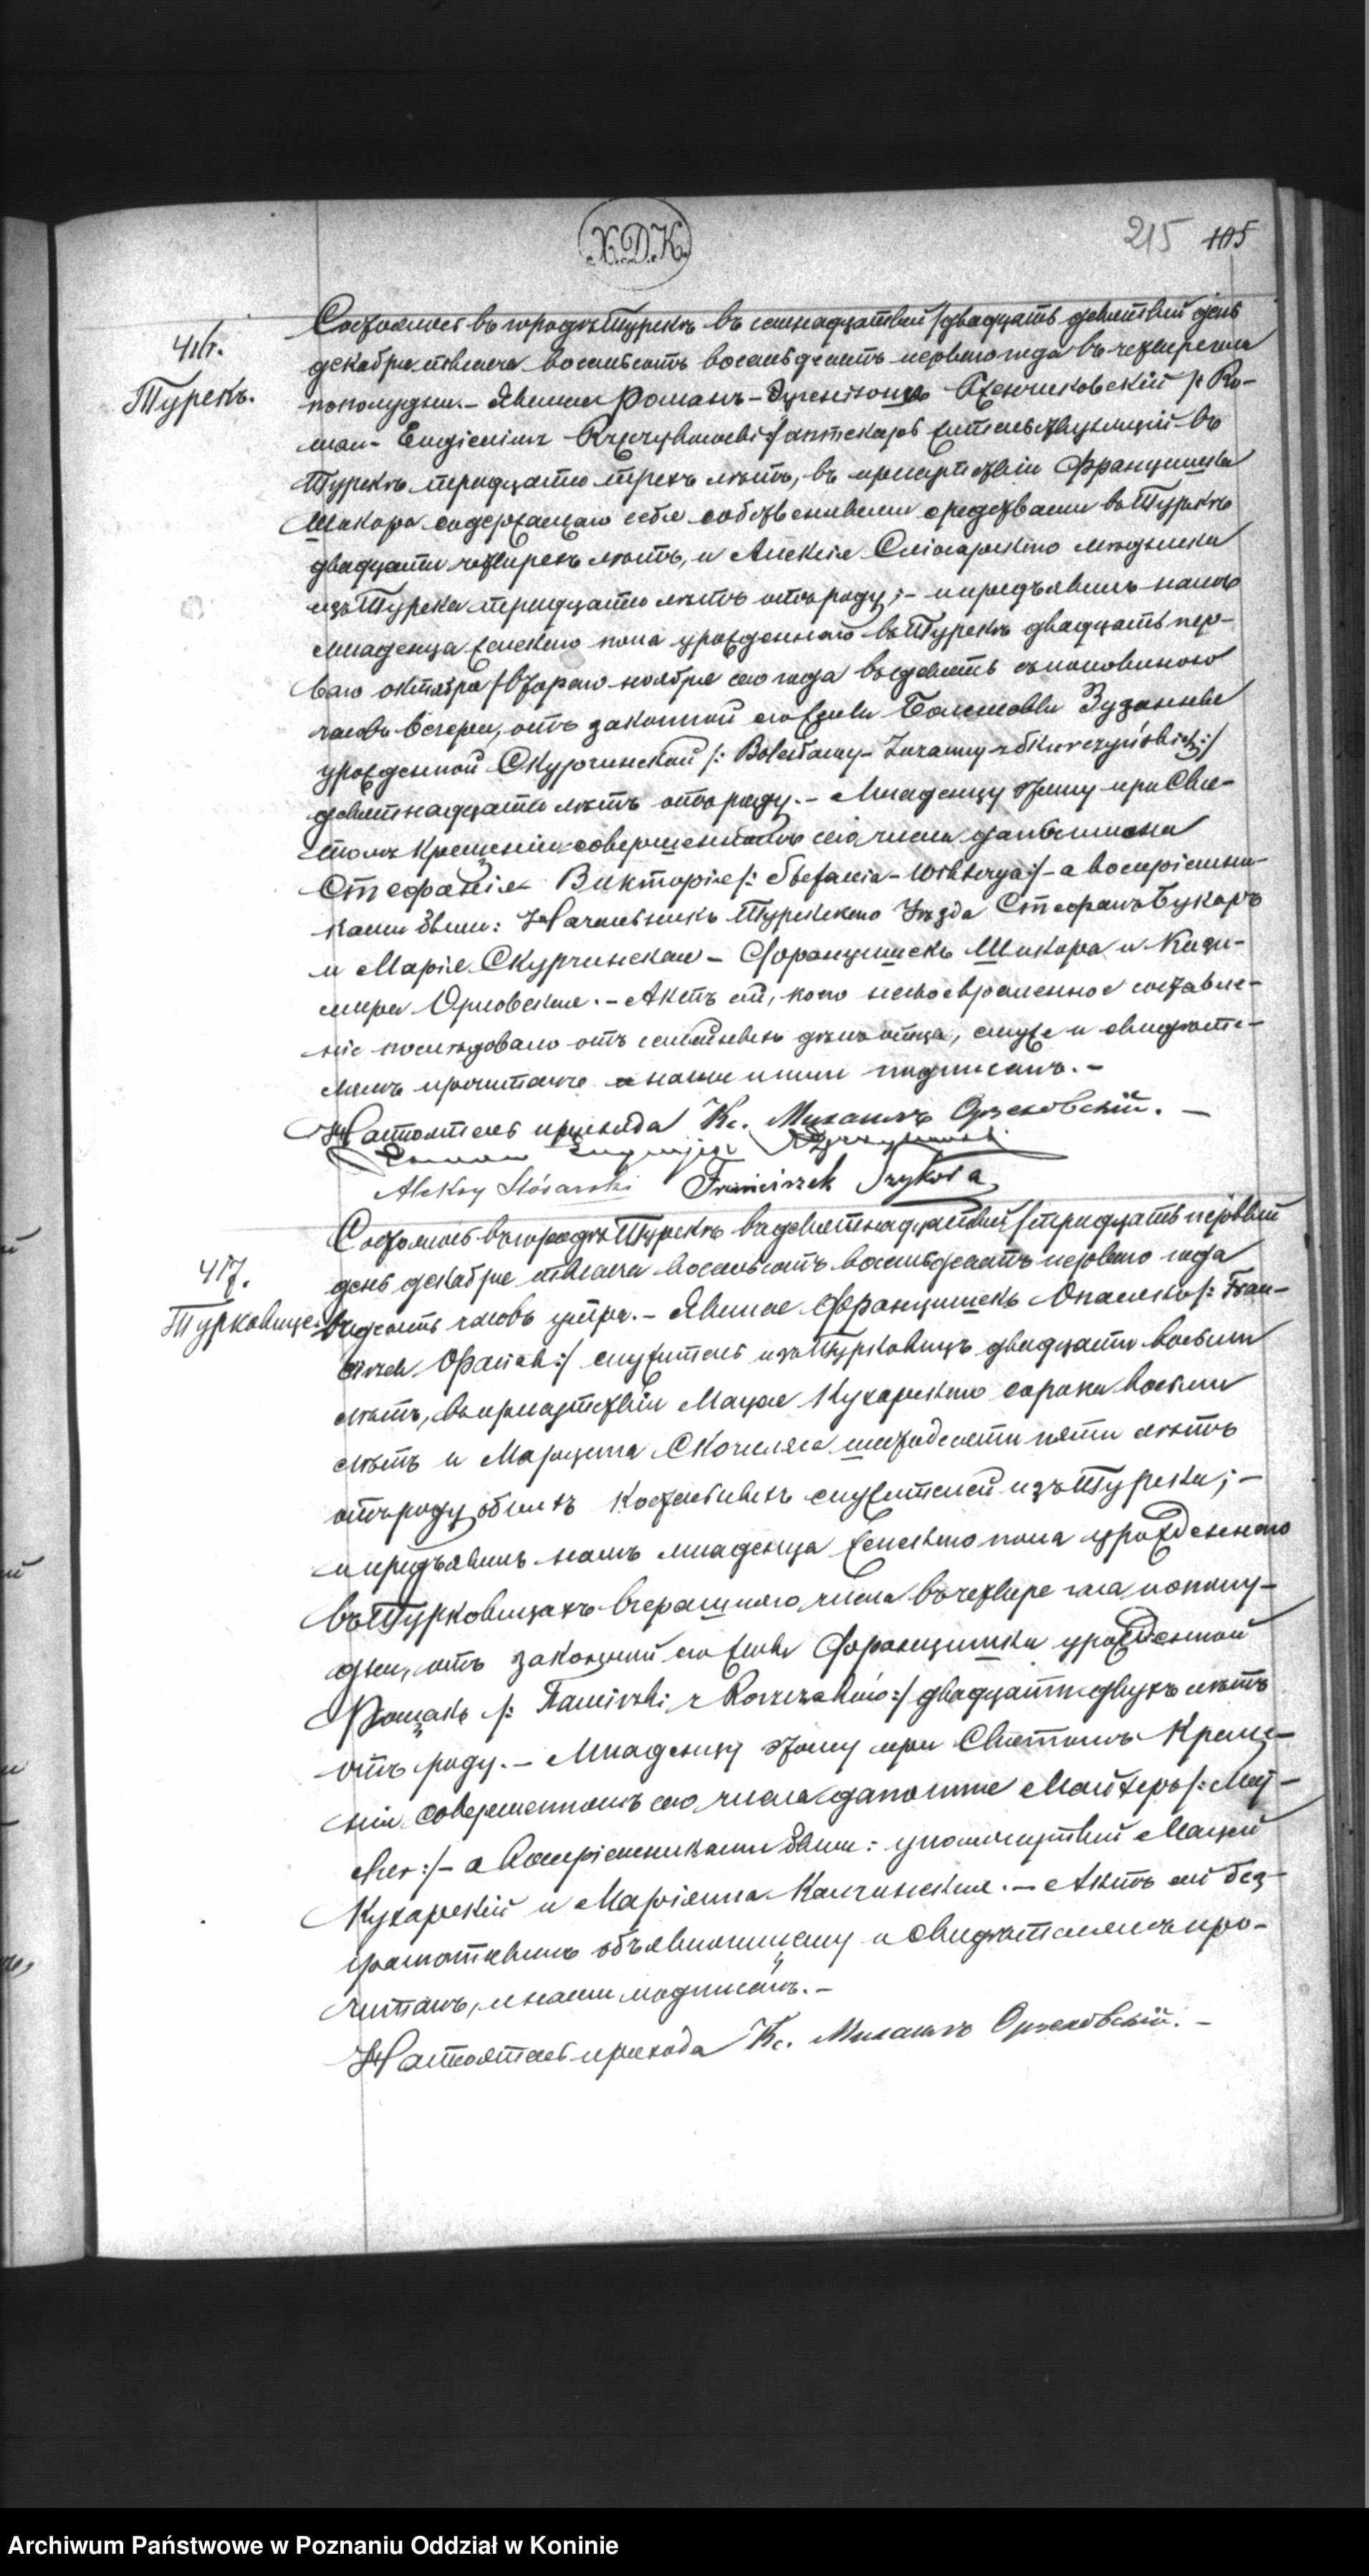 Х.Д.К.
215 105
416.
Турекъ.
Состоялось въ городѣ Турекѣ въ семнадцатый/двадцать девятый день
декабря тысяча восемьсотъ восемьдесятъ перваго года въ четыре часа
пополудни.- Явился Романъ-Эугеніюшъ /: Ro-
man- Eugieniusz :/ аптекарь жительствующій въ
Турекѣ тридцати трехъ лѣтъ, въ присутствіи Францишка
Шикора содержащаго себя собственными средствами въ Турекѣ
двадцати четырехъ лѣтъ, и Алексія Слюсарскаго
изъ Турека тридцати лѣтъ отъ роду;- и предъявилъ намъ
младенца женскаго пола урожденнаго въ Турекѣ двадцать пер-
ваго октября/втораго ноября сего года въ девять съ половиною
часовъ вечера, отъ законной его жены Болеславы Зузанны
урожденной Скурчинской /: Bolesławy- Zuzanny z Skurczyńskich :/
девятнадцати лѣтъ отъ роду.- Младенцу этому при Свя-
томъ Крещеніи совершенномъ сего числа даны имена
Стефанія Викторія /: Stefania- Wiktorya :/- а воспріемни-
ками были: Начальникъ Турекскаго Уѣзда Стефанъ Букаръ
и Марія Скурчинская- Францишекъ Шикора и Кази-
мира Орловская.- Актъ сей, коего несвоевременное составле-
ніе послѣдовало отъ семейныхъ дѣлъ отца, ему же и свидѣте-
лямъ прочитанъ нами и ими подписанъ.-
Настоятель прихода Кс. Михаилъ Оржеховскій.-
Roman Eugenjusz
Aleksy Slósarski Franciszek Szykora
417.
Турковице.
Состоялось въ городѣ Турекѣ въ девятнадцатый/тридцать первый
день декабря тысяча восемьсотъ восемьдесятъ перваго года
въ десять часовъ утра.- Явился Францишекъ Опасекъ /: Fran-
ciszek :/ служитель изъ Турковицъ двадцати восьми
лѣтъ, въ присутствіи Мацея Кухарскаго сорока восьми
лѣтъ и Марцина шестьдесяти пяти лѣтъ
отъ роду, обоихъ костельныхъ служителей изъ Турека;-
и предъявилъ намъ младенца женскаго пола урожденнаго
въ Турковицахъ вчерашняго числа въ четыре часа пополу-
дни, отъ законной его жены Францишки урожденной
двадцати двухъ лѣтъ
отъ роду.- Младенцу этому при Святомъ Креще-
ніи совершенномъ сего числа дано имя
а воспріемниками были: упомянутый Мацей
Кухарскій и Маріянна Качинская.- Актъ сей без-
грамотнымъ объявляющему и свидѣтелямъ про-
читанъ, и нами подписанъ.-
Настоятель прихода Кс. Михаилъ Оржеховскій.-
Archiwum Państwowe w Poznaniu Oddział w Koninie